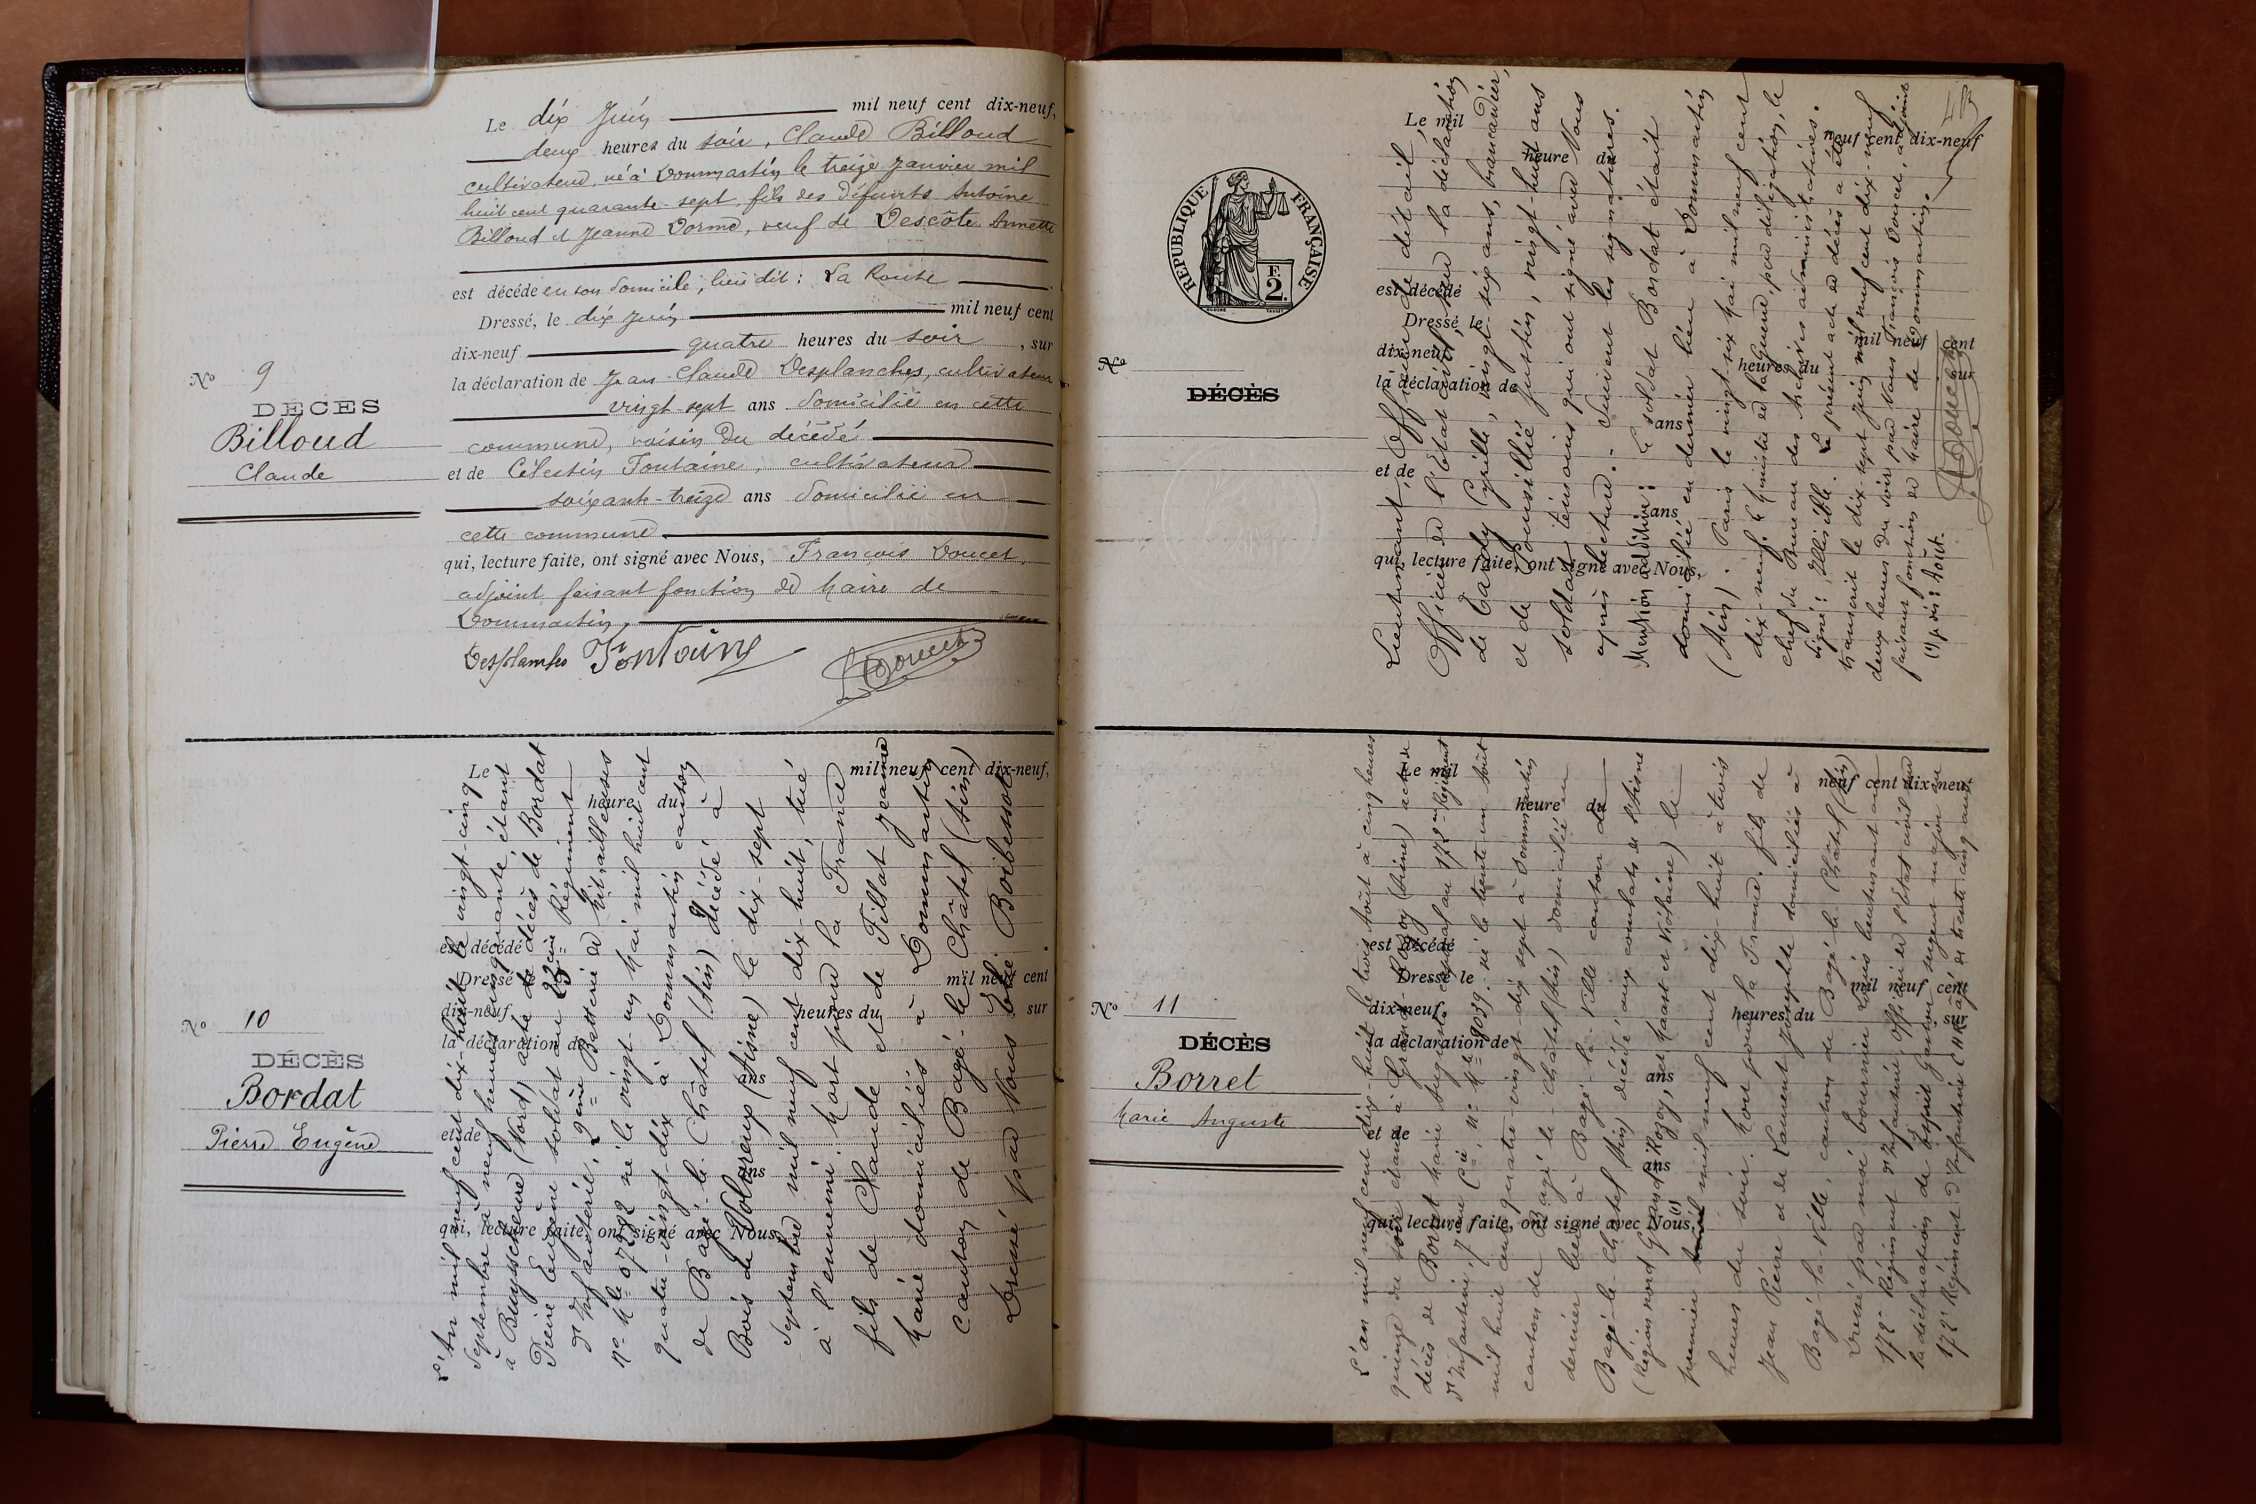 Le dix Juin mil neuf cent dix-neuf,
deux heures du soir, Claude Billoud
cultivateur, né à Dommartin le treize Janvier mil
huit cent quarante-sept, fils des défunts Antoine
Billoud et Jeanne Dorme, veuf de Descôte Annette
est décédé en son domicile, lieu dit : La Route
Dressé, le dix Juin mil neuf cent
dix-neuf quatre heures du soir, sur
la déclaration de Jean Claude Desplanches, cultivateur
vingt-sept ans domicilié en cette
commune, voisin du décédé
et de Célestin Fontaine, cultivateur
soixante-treize ans domicilié en
cette commune
qui, lecture faite, ont signé avec Nous, François Doucet,
adjoint faisant fonction de Maire de
Dommartin.
Desplanches Fontaine Doucet
No 9
DÉCÈS
Billoud
Claude
No 10
DÉCÈS
Bordat
Pierre Eugène
Le mil neuf cent dix-neuf,
heure du
est décédé
Dressé le mil neuf cent
dix-neuf heures du sur
la déclaration de
ans
et de
ans
qui, lecture faite, ont signé avec Nous,
L'An mil neuf cent dix-huit le vingt-cinq
Septembre à neuf heures cinquante, étant
à Buysscheure (Nord) acte de décès de Bordat
Pierre Eugène soldat au 23ème Régiment
d'Infanterie, 2ème Batterie de Mitrailleuses
No Mle 07292 né le vingt-un Mai mil huit cent
quatre-vingt-dix à Dommartin canton
de Bagé-le-Châtel (Ain) décédé à
Bois de Volareux (Aisne) le dix-sept
Septembre mil neuf cent dix-huit, tué
à l'ennemi. Mort pour la France
fils de Claude et de Tillat Jeanne
Marie domiciliés à Dommartin
Canton de Bagé-le-Châtel (Ain)
Dressé par Nous Elie Boibessot
REPUBLIQUE FRANÇAISE
F.
2.
No
DÉCÈS
Le mil neuf cent dix-neuf
heure du
est décédé
Dressé le mil neuf cent
dix-neuf heures du sur
la déclaration de
ans
et de
ans
qui, lecture faite, ont signé avec Nous,
Lieutenant, Officier de détail,
Officier de l'Etat civil, sur la déclaration
de Tardy Cyrille, vingt-six ans, brancardier,
et de Pousillié Justin, vingt-huit ans
soldat, témoins qui ont signé avec Nous
après lecture. - Suivent les signatures.
Mention additive : le soldat Bordat était
domicilié en dernier lieu à Dommartin
(Ain). Paris le vingt-six Mai mil neuf cent
dix-neuf. Le Ministre de la Guerre, par délégation, le
chef du Bureau des Archives administratives.
signé : Illisible. Le présent acte de décès a été
transcrit le dix-sept Juin mil neuf cent dix-neuf
deux heures du soir par Nous François Doucet, adjoint
faisant fonction de Maire de Dommartin.
Doucet
(1) : Août.
No 11
DÉCÈS
Borret
Marie Auguste
Le mil neuf cent dix-neuf
heure du
est décédé
Dressé le mil neuf cent
dix-neuf heures du sur
la déclaration de
ans
et de
ans
qui, lecture faite, ont signé avec Nous,
L'an mil neuf cent dix-huit le trois Août à cinq heures
quinze du soir étant à Grand-Rozoy (Aisne) acte de
décès de Borret Marie Auguste caporal au 172e Régiment
d'Infanterie, 7ème Cie, No Mle 9039. né le trente un Août
mil huit cent quatre-vingt dix sept à Dommartin
canton de Bagé-le-Châtel (Ain) domicilié en
dernier lieu à Bagé-la-Ville canton de
Bagé-le-Châtel (Ain) décédé aux combats de l'Aisne
(Région nord Grand-Rozoy, et Maast et Violaine) le
premier (1) mil neuf cent dix-huit à trois
heures du soir. Mort pour la France, fils de
Jean Pierre et de Laurent domiciliés à
Bagé-la-Ville, canton de Bagé-le-Châtel (Ain)
Dressé par moi Lieutenant au
172e Régiment d'Infanterie, Officier de l'Etat civil sur
la déclaration de Gaston sergent major au
172e Régiment d'Infanterie CHR âgé de trente cinq ans